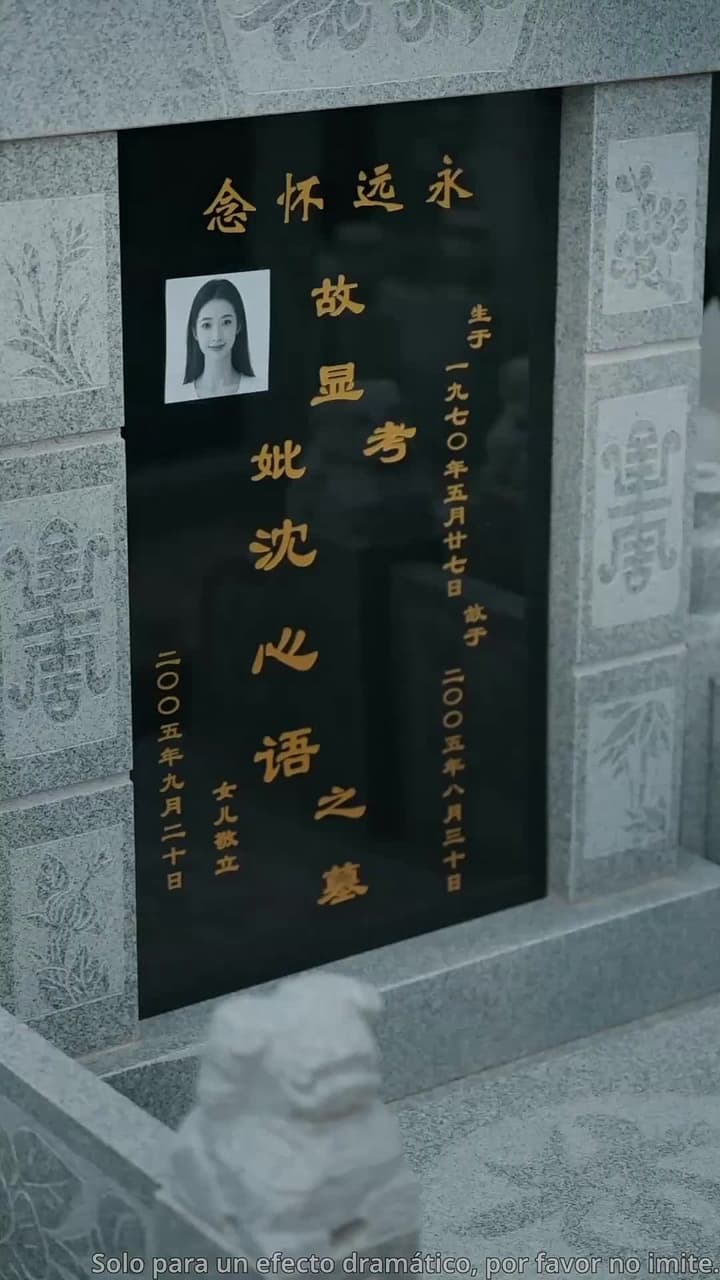 永远怀念
生于一九七〇年五月廿七日
故于二〇〇五年八月三十日
故显考妣沈心语之墓
女儿敬立
二〇〇五年九月二十日
Solo para un efecto dramático, por favor no imite.